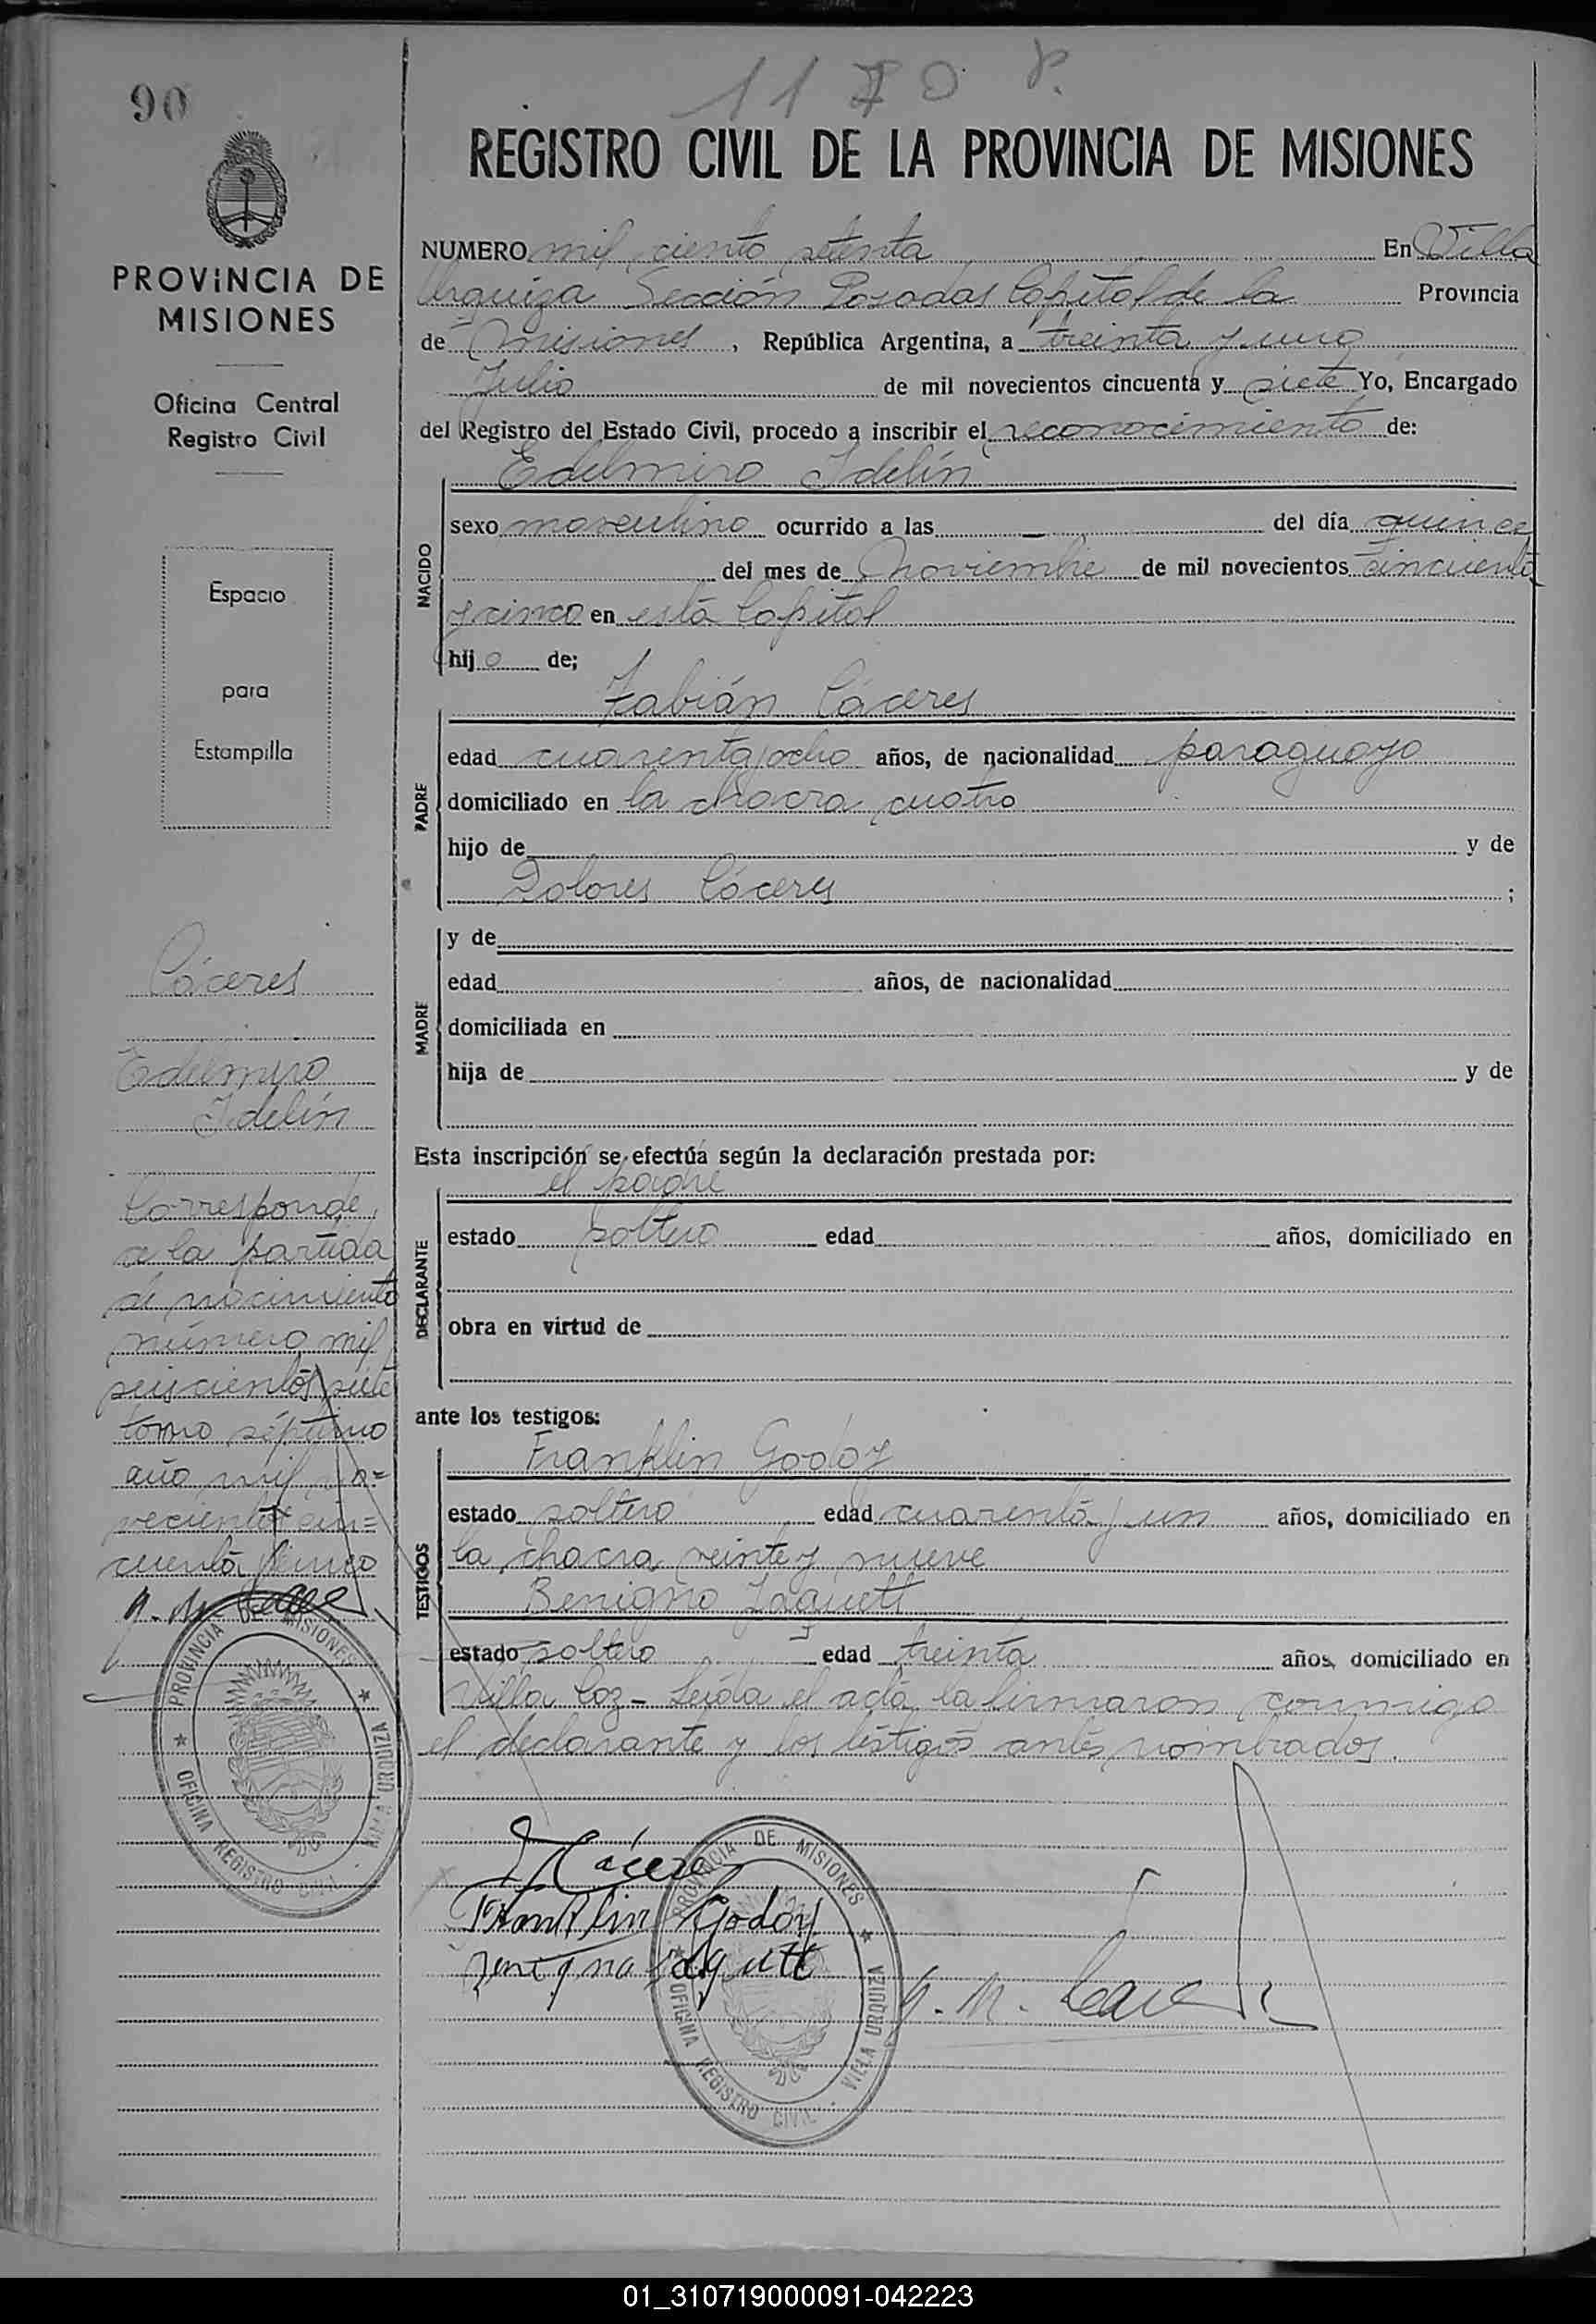 90
1170 P.
REGISTRO CIVIL DE LA PROVINCIA DE MISIONES
PROVINCIA DE
MISIONES
Oficina Central
Registro Civil
Espacio
para
Estampilla
Cáceres
Edelmiro
Idelín
Corresponde
a la partida
de nacimiento
número mil
seiscientos siete
tomo séptimo
año mil no=
vecientos cin=
cuenta y cinco
PROVINCIA DE MISIONES
OFICINA REGISTRO CIVIL VILLA URQUIZA
NUMERO mil ciento setenta En Villa
Urquiza Sección Posadas Capital de la Provincia
de Misiones, República Argentina, a treinta y uno
Julio de mil novecientos cincuenta y siete Yo, Encargado
del Registro del Estado Civil, procedo a inscribir el reconocimiento de:
Edelmiro Idelín
NACIDO
sexo masculino ocurrido a las — del día quince
del mes de Noviembre de mil novecientos cincuenta
y cinco en está Capital
hijo de;
Fabián Cáceres
PADRE
edad cuarenta y ocho años, de nacionalidad paraguayo
domiciliado en la chacra cuatro
hijo de y de
Dolores Cáceres ;
MADRE
y de
edad años, de nacionalidad
domiciliada en
hija de y de
Esta inscripción se efectúa según la declaración prestada por:
el padre
DECLARANTE
estado soltero edad años, domiciliado en
obra en virtud de
ante los testigos:
Franklin Godoy
TESTIGOS
estado soltero edad cuarenta y un años, domiciliado en
la chacra veinte y nueve
Benigno
estado soltero edad treinta años, domiciliado en
Villa Coz - Leída el acta, la firmaron conmigo
el declarante y los testigos antes nombrados.
F Cáceres
Franklin Godoy
PROVINCIA DE MISIONES
OFICINA REGISTRO CIVIL VILLA URQUIZA
01_310719000091-042223